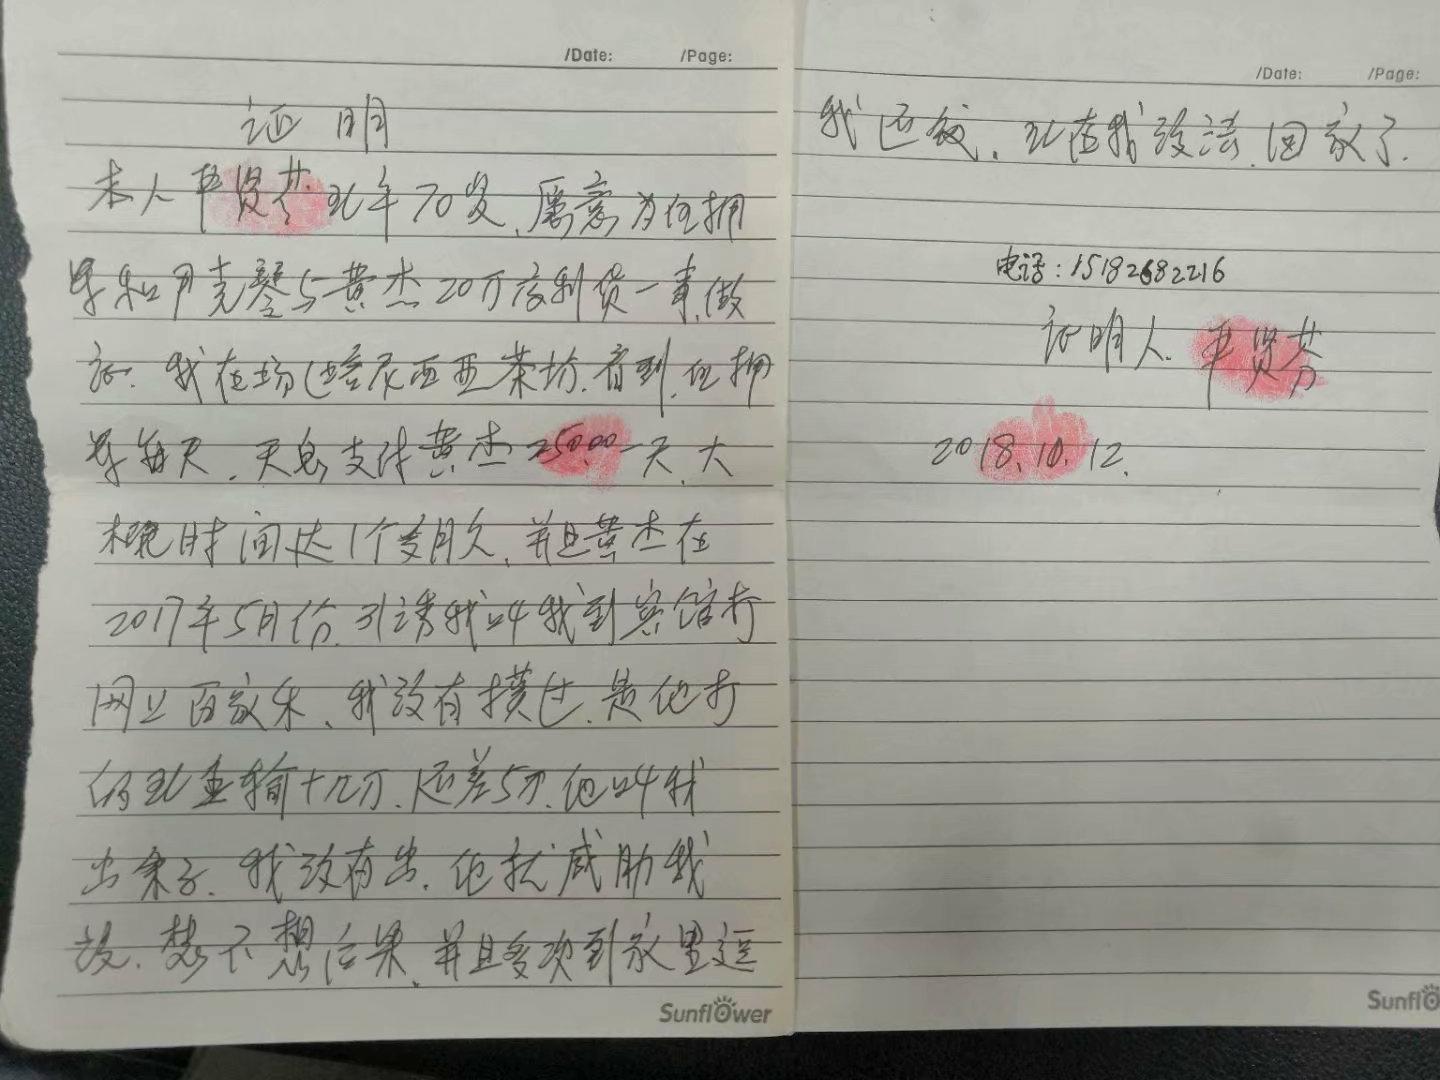 /Date: /Page:
证明
本人 贤芬 现年70岁、愿意为任拥
军和月克琴与黄杰20万高利贷一事,做
证. 我在场(塔尼西亚茶坊.看到.任拥
军每天.天息支付黄杰2500.00一天、大
概时间达1个多月久、并且黄杰在
2017年5月份.引诱我叫我到宾馆打
网上百家乐、我没有摸过.是他打
的现金输十几万、还差5万.他叫我
出条子.我没有出.他扰威胁我
说.想不想后果、并且多次到家里逼
Sunflower
/Date: /Page:
我还钱.现在我没法.回家了.
电话:15182682216
证明人. 贤芬
2018.10.12.
Sunflo